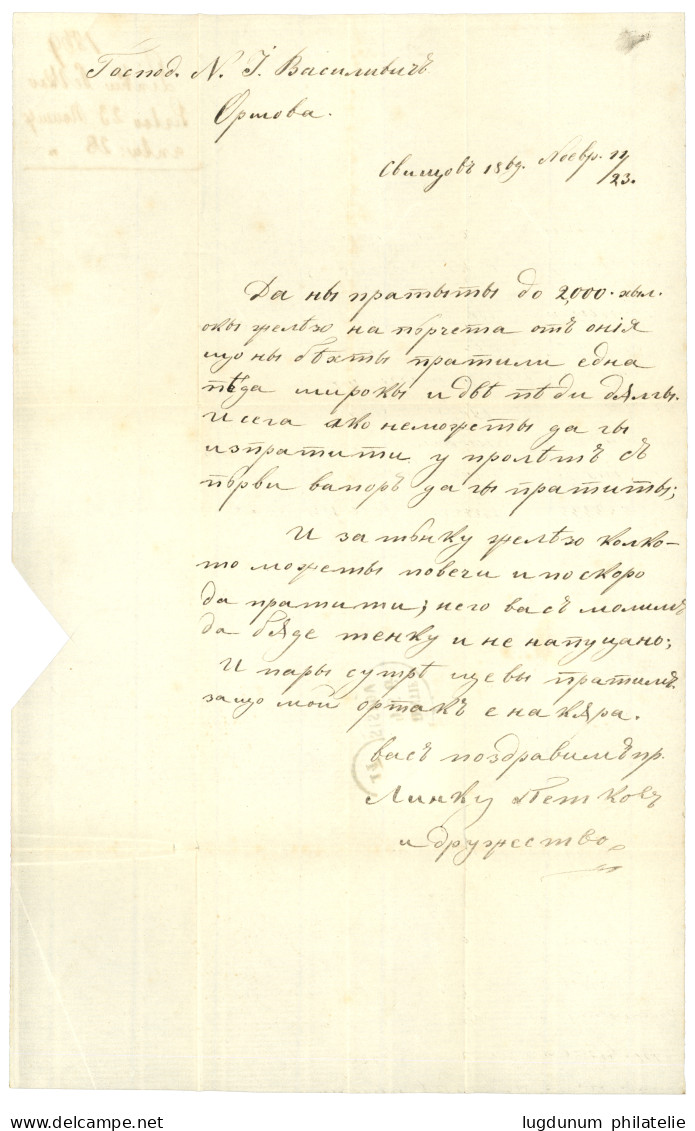 Господ. N. I. Василивичъ
Оршова.
Свищовъ 1869. Ноевр. 11/23.
Да ны пратыты до 2,000. хыл.
окы желѣзо на пърчета отъ онія
що ны бѣхты пратили една
пѣда широкы и двѣ пѣди дѫлгы.
и сега ако неможеты да гы
изпратити у пролѣтъ съ
първи вапоръ да гы пратиты;
И за тънку желѣзо колко-
то можеты повечи и по скоро
да пратити; него васъ молимъ
да бѫде тенку и не напуцано;
И пары сутрѣ ще вы пратимъ
защо мой ортакъ е на кяра.
васъ поздравимъ пр.
Линку Петковъ
и дружество
lugdunum philatelie